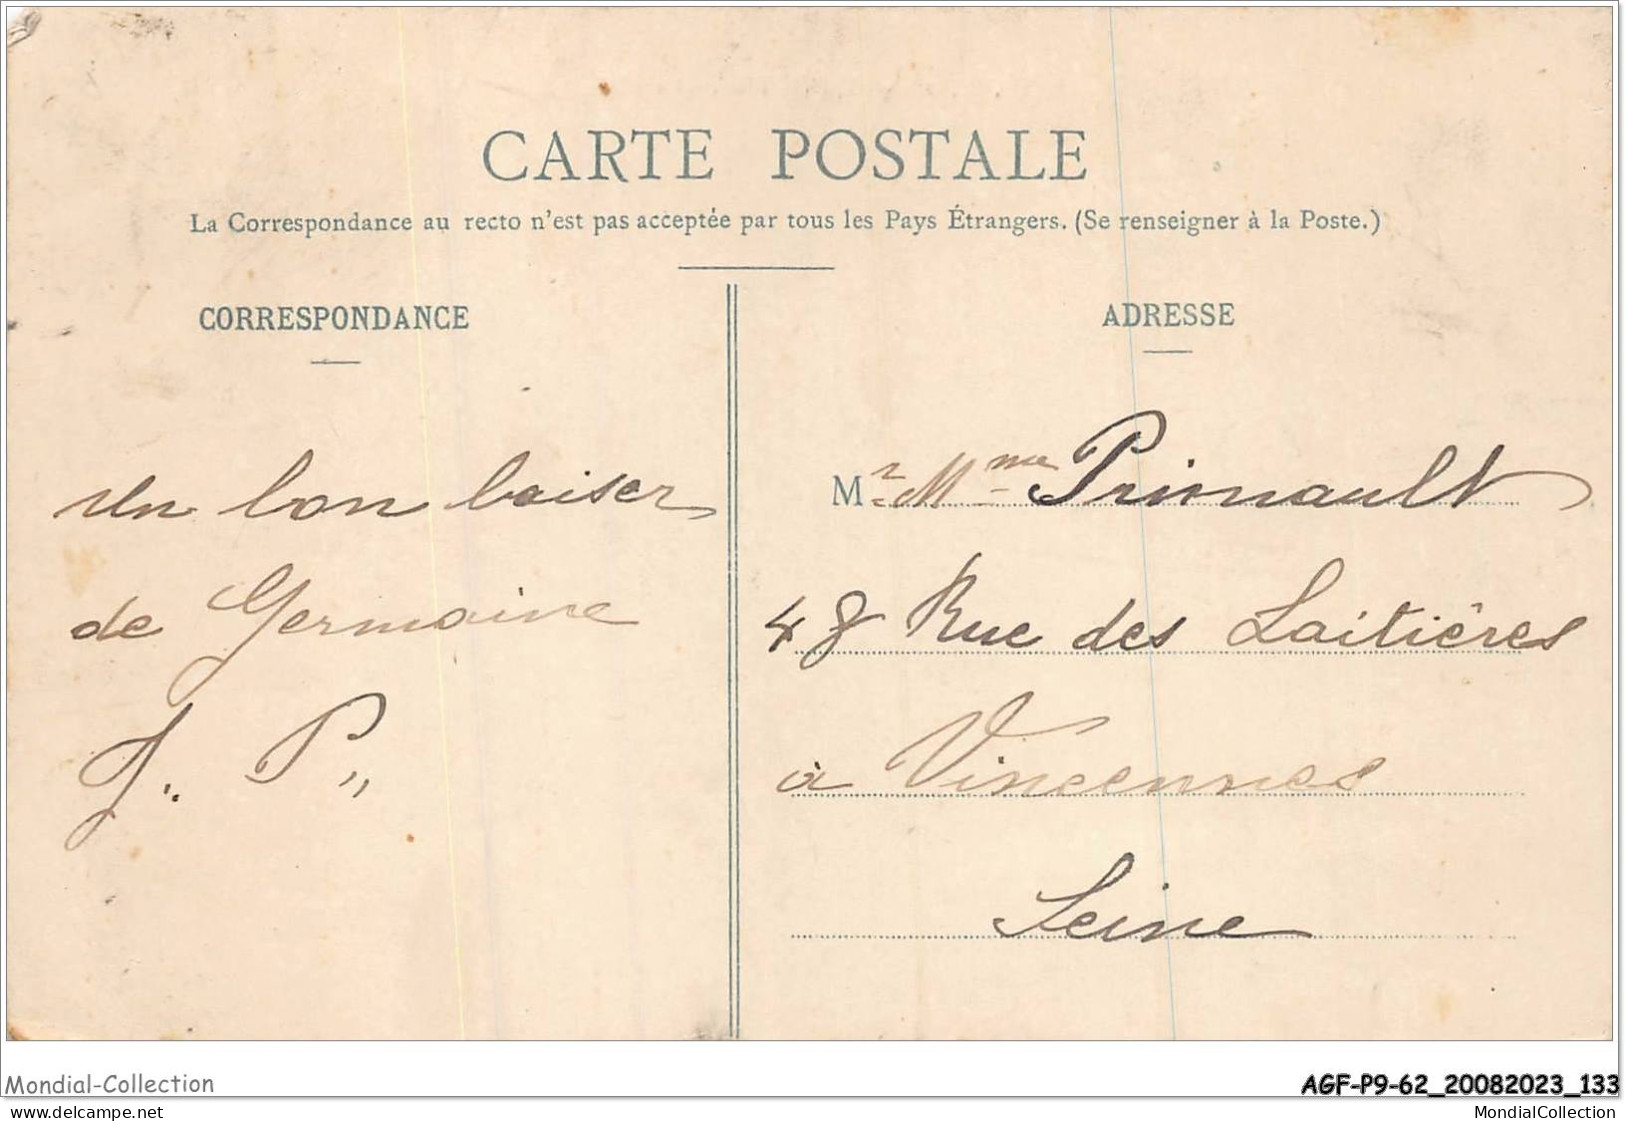 CARTE POSTALE
La Correspondance au recto n'est pas acceptée par tous les Pays Étrangers. (Se renseigner à la Poste.)
CORRESPONDANCE
Un bon baiser
de Germaine
J. P.
ADRESSE
Mr Mme Primault
48 Rue des Laitières
à Vincennes
Seine
Mondial-Collection
AGF-P9-62_20082023_133
delcampe.net
MondialCollection